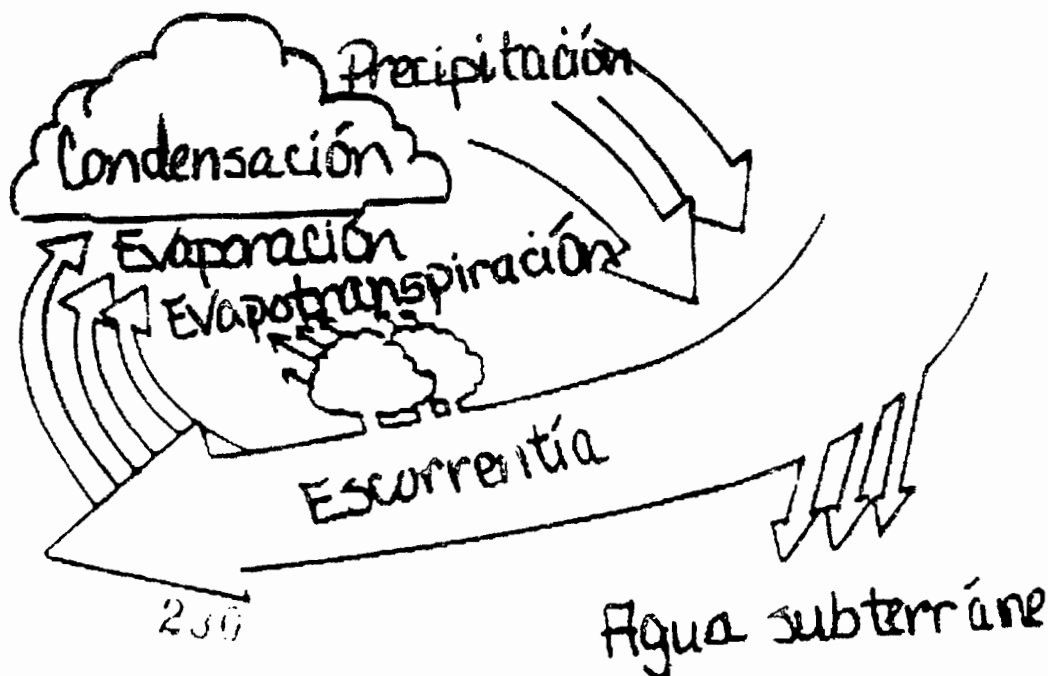 Precipitación
Condensación
Evaporación
Evapotranspiración
Escorrentía
Agua subterráne